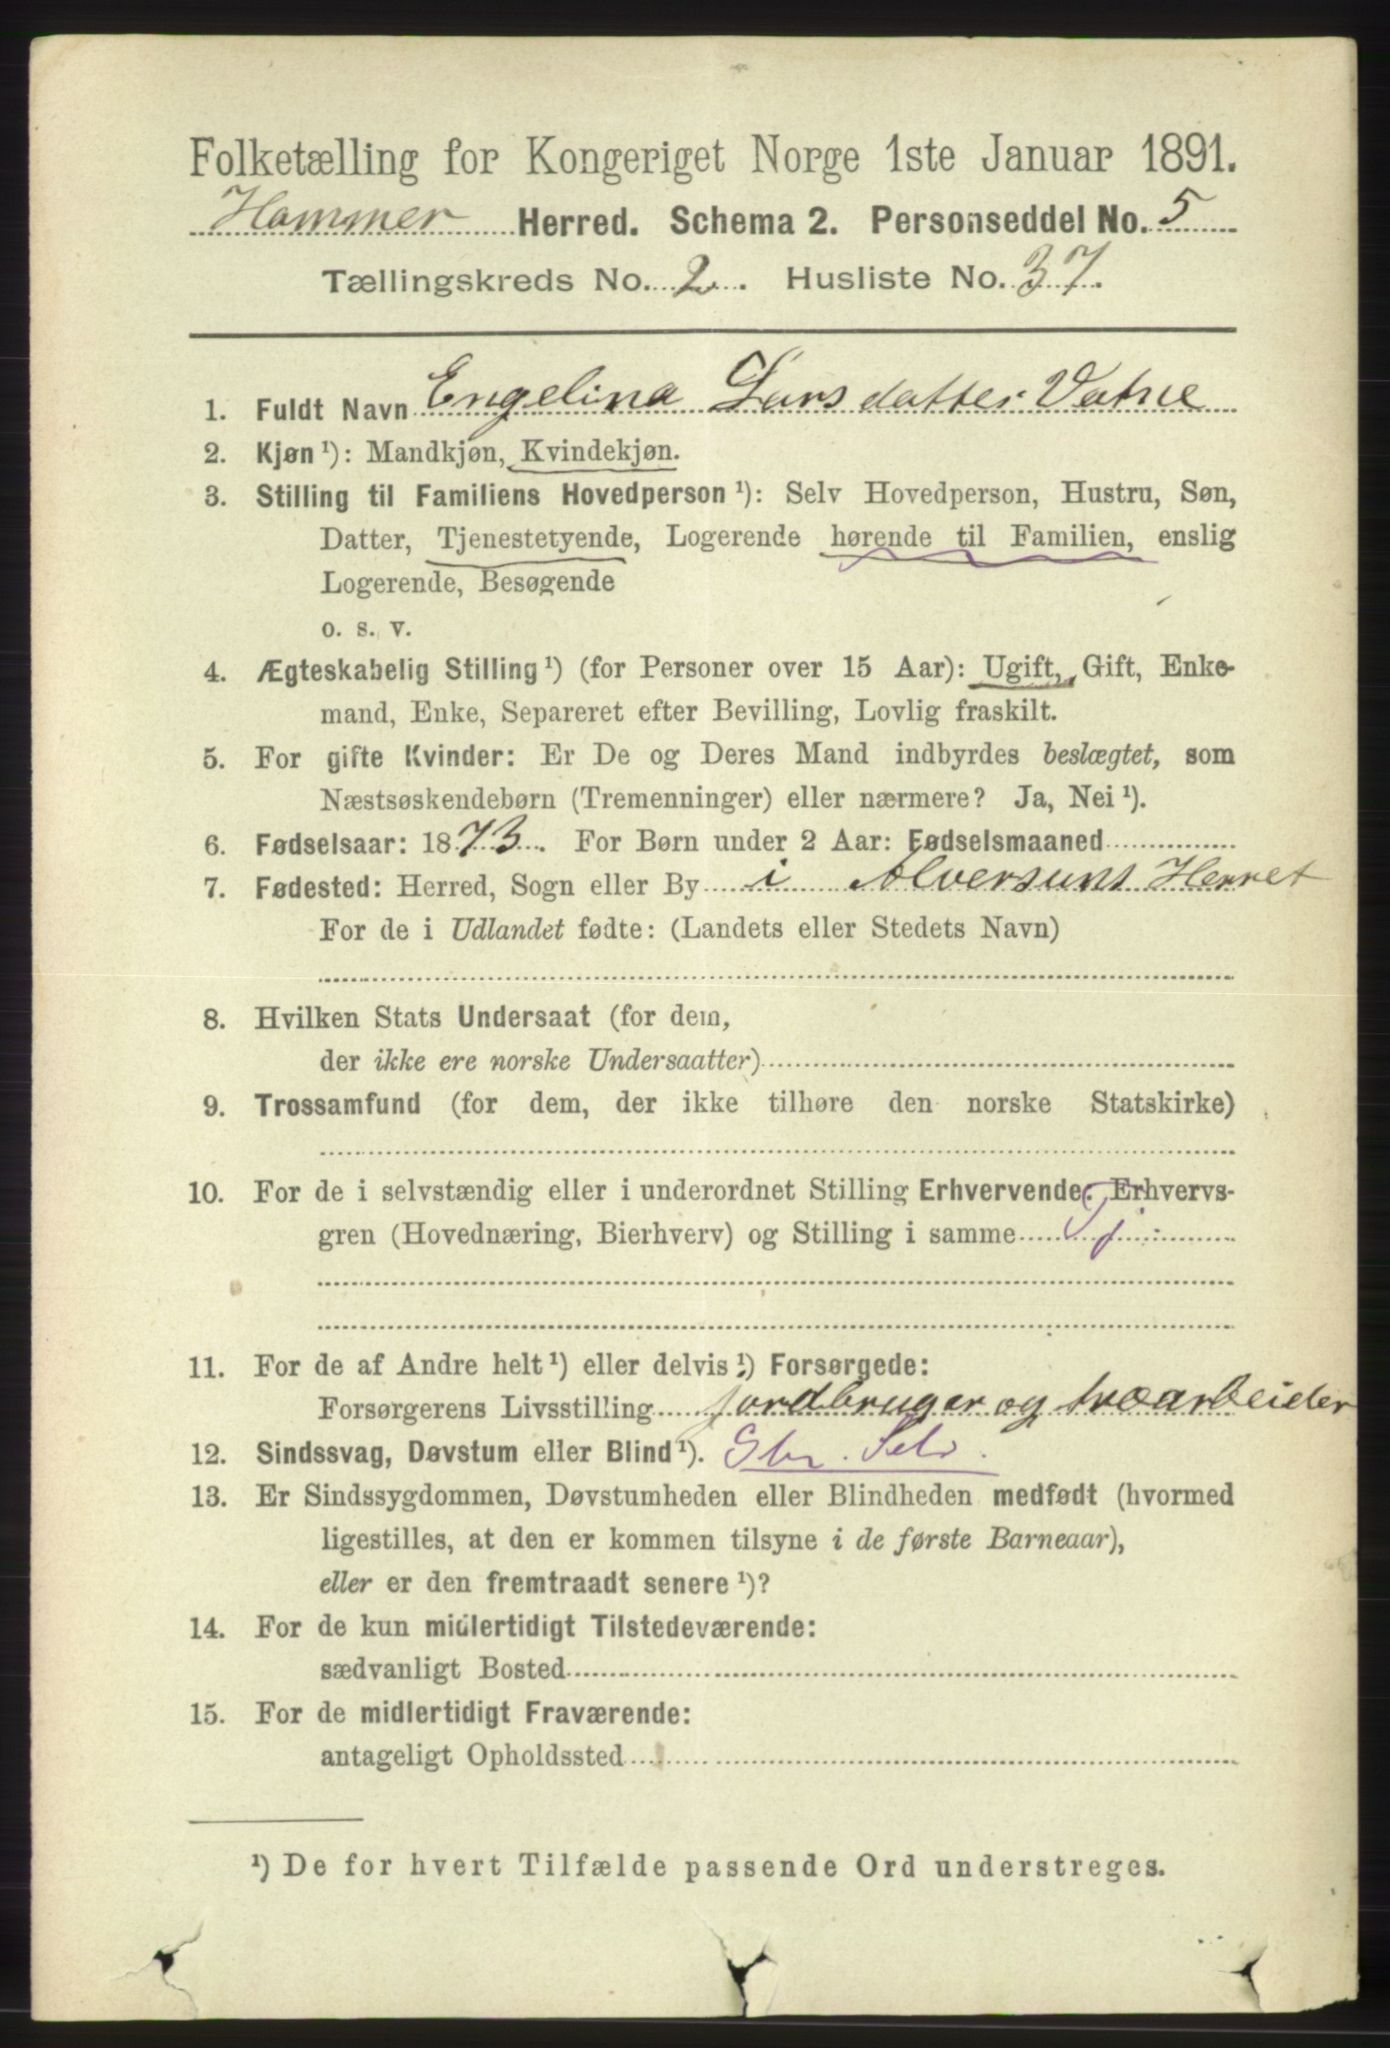 Folketælling for Kongeriget Norge 1ste Januar 1891.
Hammer Herred. Schema 2. Personseddel No. 5
Tællingskreds No. 2. Husliste No. 37.
1. Fuldt Navn Engelina Larsdatter Vatne
2. Kjøn ¹): Mandkjøn, Kvindekjøn.
3. Stilling til Familiens Hovedperson ¹): Selv Hovedperson, Hustru, Søn,
Datter, Tjenestetyende, Logerende hørende til Familien, enslig
Logerende, Besøgende
o. s. v.
4. Ægteskabelig Stilling ¹) (for Personer over 15 Aar): Ugift, Gift, Enke-
mand, Enke, Separeret efter Bevilling, Lovlig fraskilt.
5. For gifte Kvinder: Er De og Deres Mand indbyrdes beslægtet, som
Næstsøskendebørn (Tremenninger) eller nærmere? Ja, Nei ¹).
6. Fødselsaar: 1873. For Børn under 2 Aar: Fødselsmaaned
7. Fødested: Herred, Sogn eller By i Alversuns Herret
For de i Udlandet fødte: (Landets eller Stedets Navn)
8. Hvilken Stats Undersaat (for dem,
der ikke ere norske Undersaatter)
9. Trossamfund (for dem, der ikke tilhøre den norske Statskirke)
10. For de i selvstændig eller i underordnet Stilling Erhvervende: Erhvervs-
gren (Hovednæring, Bierhverv) og Stilling i samme Tj.
11. For de af Andre helt ¹) eller delvis ¹) Forsørgede:
Forsørgerens Livsstilling jordbruger og træarbeider
12. Sindssvag, Døvstum eller Blind ¹). Gbr. Selv.
13. Er Sindssygdommen, Døvstumheden eller Blindheden medfødt (hvormed
ligestilles, at den er kommen tilsyne i de første Barneaar),
eller er den fremtraadt senere ¹)?
14. For de kun midlertidigt Tilstedeværende:
sædvanligt Bosted
15. For de midlertidigt Fraværende:
antageligt Opholdssted
¹) De for hvert Tilfælde passende Ord understreges.